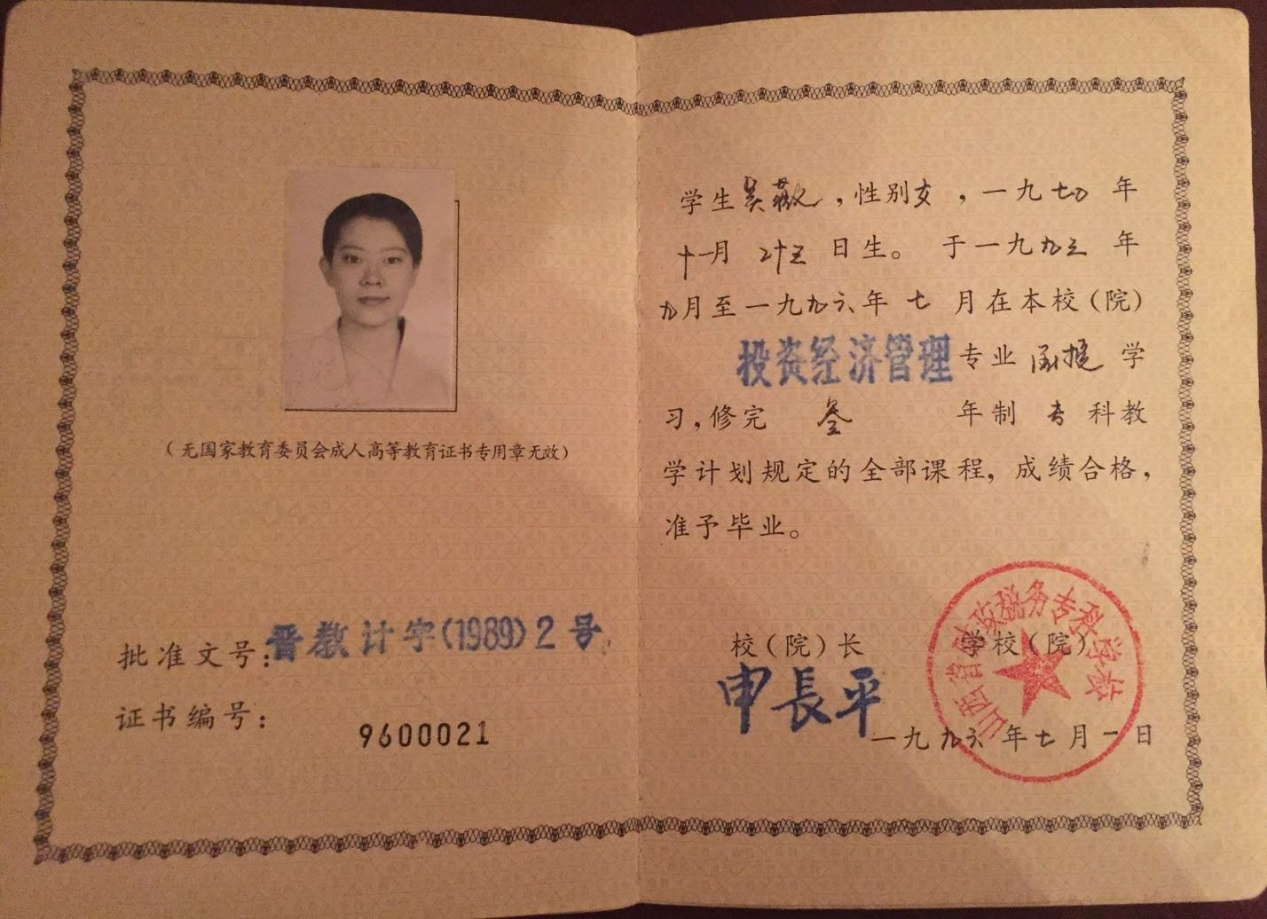 (无国家教育委员会成人高等教育证书专用章无效)
批准文号:晋教计字(1989)2号
证书编号: 9600021
学生吴薇,性别女,一九七〇年
十一月 廿五 日生。于一九九三年
九月至一九九六年 七 月在本校(院)
投资经济管理专业函授学
习,修完 叁 年制 专 科教
学计划规定的全部课程,成绩合格,
准予毕业。
校(院)长 学校(院)
申長平
一九九六年七月一日
山西省财政税务专科学校